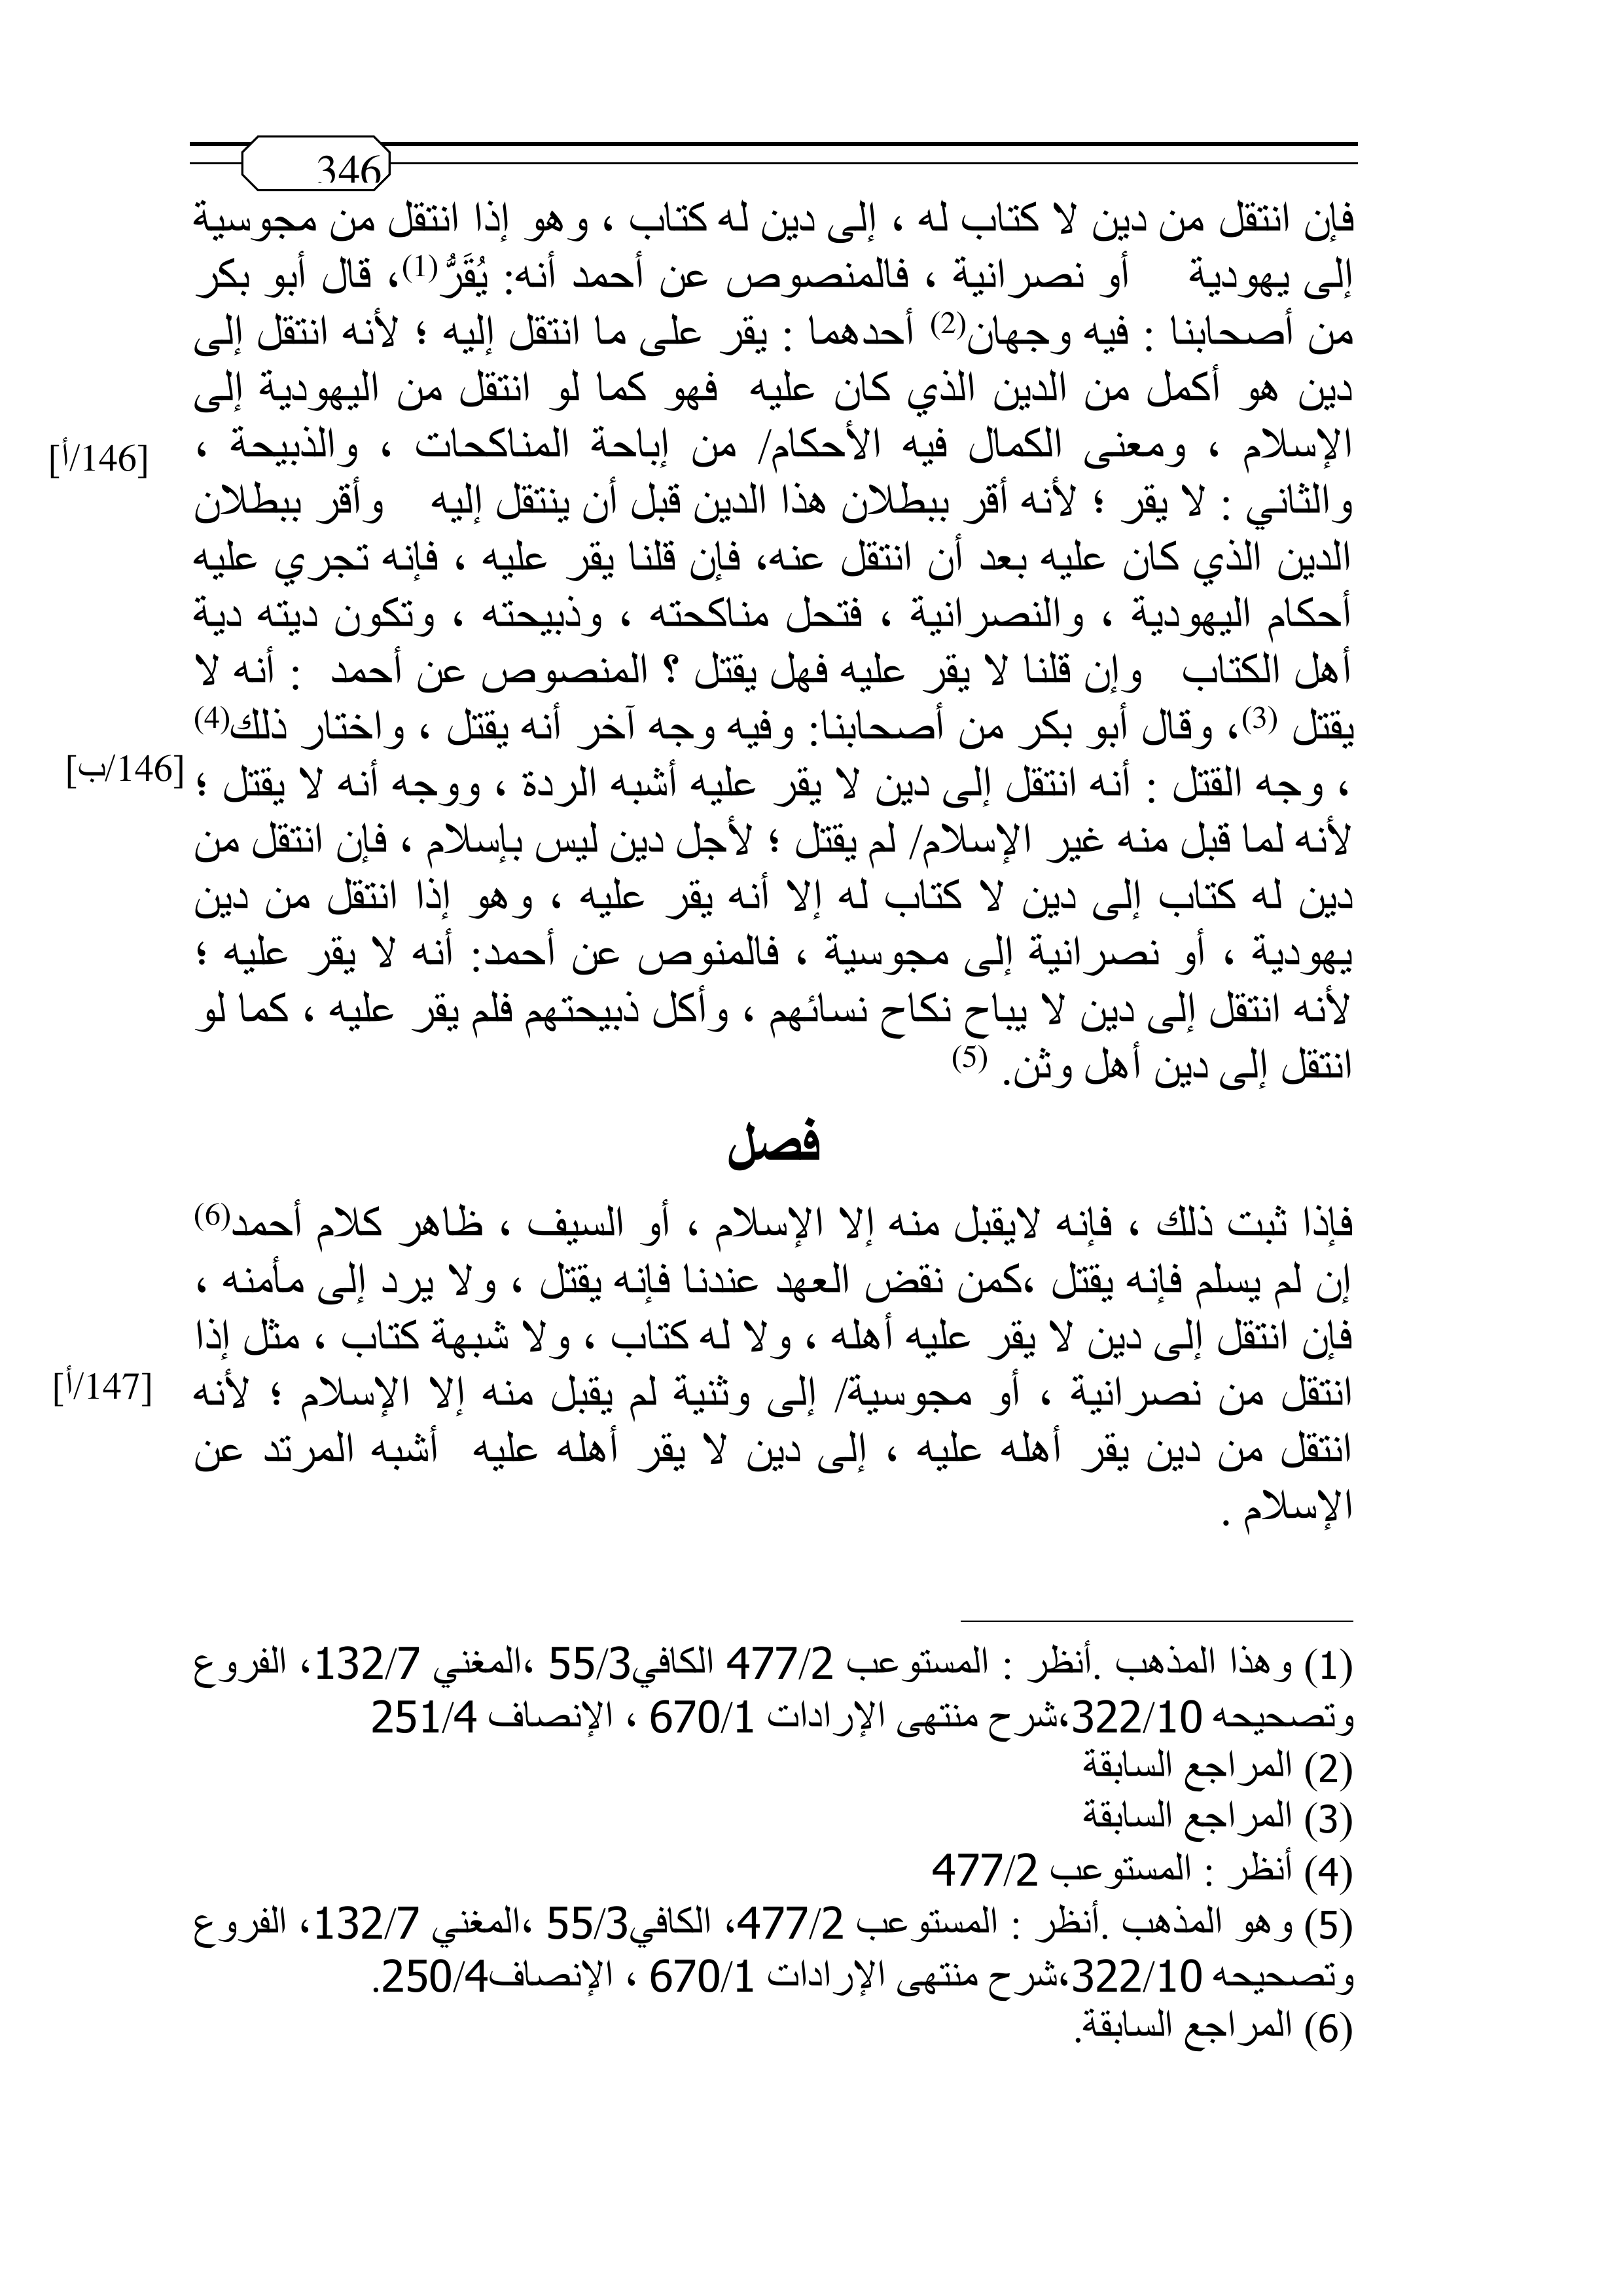 346
فإن انتقل من دين لا كتاب له ، إلى دين له كتاب ، وهو إذا انتقل من مجوسية
إلى يهودية أو نصرانية ، فالمنصوص عن أحمد أنه: يُقَرُّ(1)، قال أبو بكر
من أصحابنا : فيه وجهان(2) أحدهما : يقر على ما انتقل إليه ؛ لأنه انتقل إلى
دين هو أكمل من الدين الذي كان عليه فهو كما لو انتقل من اليهودية إلى
الإسلام ، ومعنى الكمال فيه الأحكام/ من إباحة المناكحات ، والذبيحة ،
[146/أ]
والثاني : لا يقر ؛ لأنه أقر ببطلان هذا الدين قبل أن ينتقل إليه وأقر ببطلان
الدين الذي كان عليه بعد أن انتقل عنه، فإن قلنا يقر عليه ، فإنه تجري عليه
أحكام اليهودية ، والنصرانية ، فتحل مناكحته ، وذبيحته ، وتكون ديته دية
أهل الكتاب وإن قلنا لا يقر عليه فهل يقتل ؟ المنصوص عن أحمد : أنه لا
يقتل (3)، وقال أبو بكر من أصحابنا: وفيه وجه آخر أنه يقتل ، واختار ذلك(4)
، وجه القتل : أنه انتقل إلى دين لا يقر عليه أشبه الردة ، ووجه أنه لا يقتل ؛
[146/ب]
لأنه لما قبل منه غير الإسلام/ لم يقتل ؛ لأجل دين ليس بإسلام ، فإن انتقل من
دين له كتاب إلى دين لا كتاب له إلا أنه يقر عليه ، وهو إذا انتقل من دين
يهودية ، أو نصرانية إلى مجوسية ، فالمنوص عن أحمد: أنه لا يقر عليه ؛
لأنه انتقل إلى دين لا يباح نكاح نسائهم ، وأكل ذبيحتهم فلم يقر عليه ، كما لو
انتقل إلى دين أهل وثن. (5)
فصل
فإذا ثبت ذلك ، فإنه لايقبل منه إلا الإسلام ، أو السيف ، ظاهر كلام أحمد(6)
إن لم يسلم فإنه يقتل ،كمن نقض العهد عندنا فإنه يقتل ، ولا يرد إلى مأمنه ،
فإن انتقل إلى دين لا يقر عليه أهله ، ولا له كتاب ، ولا شبهة كتاب ، مثل إذا
انتقل من نصرانية ، أو مجوسية/ إلى وثنية لم يقبل منه إلا الإسلام ؛ لأنه
[147/أ]
انتقل من دين يقر أهله عليه ، إلى دين لا يقر أهله عليه أشبه المرتد عن
الإسلام .
(1) وهذا المذهب .أنظر : المستوعب 477/2 الكافي55/3 ،المغني 132/7، الفروع
وتصحيحه 322/10،شرح منتهى الإرادات 670/1 ، الإنصاف 251/4
(2) المراجع السابقة
(3) المراجع السابقة
(4) أنظر : المستوعب 477/2
(5) وهو المذهب .أنظر : المستوعب 477/2، الكافي55/3 ،المغني 132/7، الفروع
وتصحيحه 322/10،شرح منتهى الإرادات 670/1 ، الإنصاف250/4.
(6) المراجع السابقة.